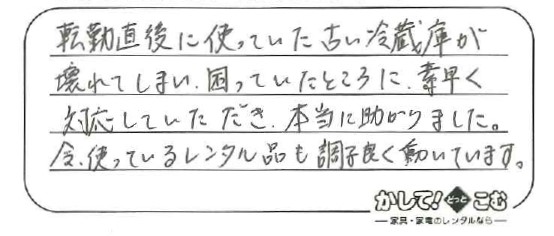 転勤直後に使っていた古い冷蔵庫が
壊れてしまい、困っていたところに、素早く
対応していただき、本当に助かりました。
今、使っているレンタル品も調子良く動いています。
かして!どっとこむ
家具・家電のレンタルなら